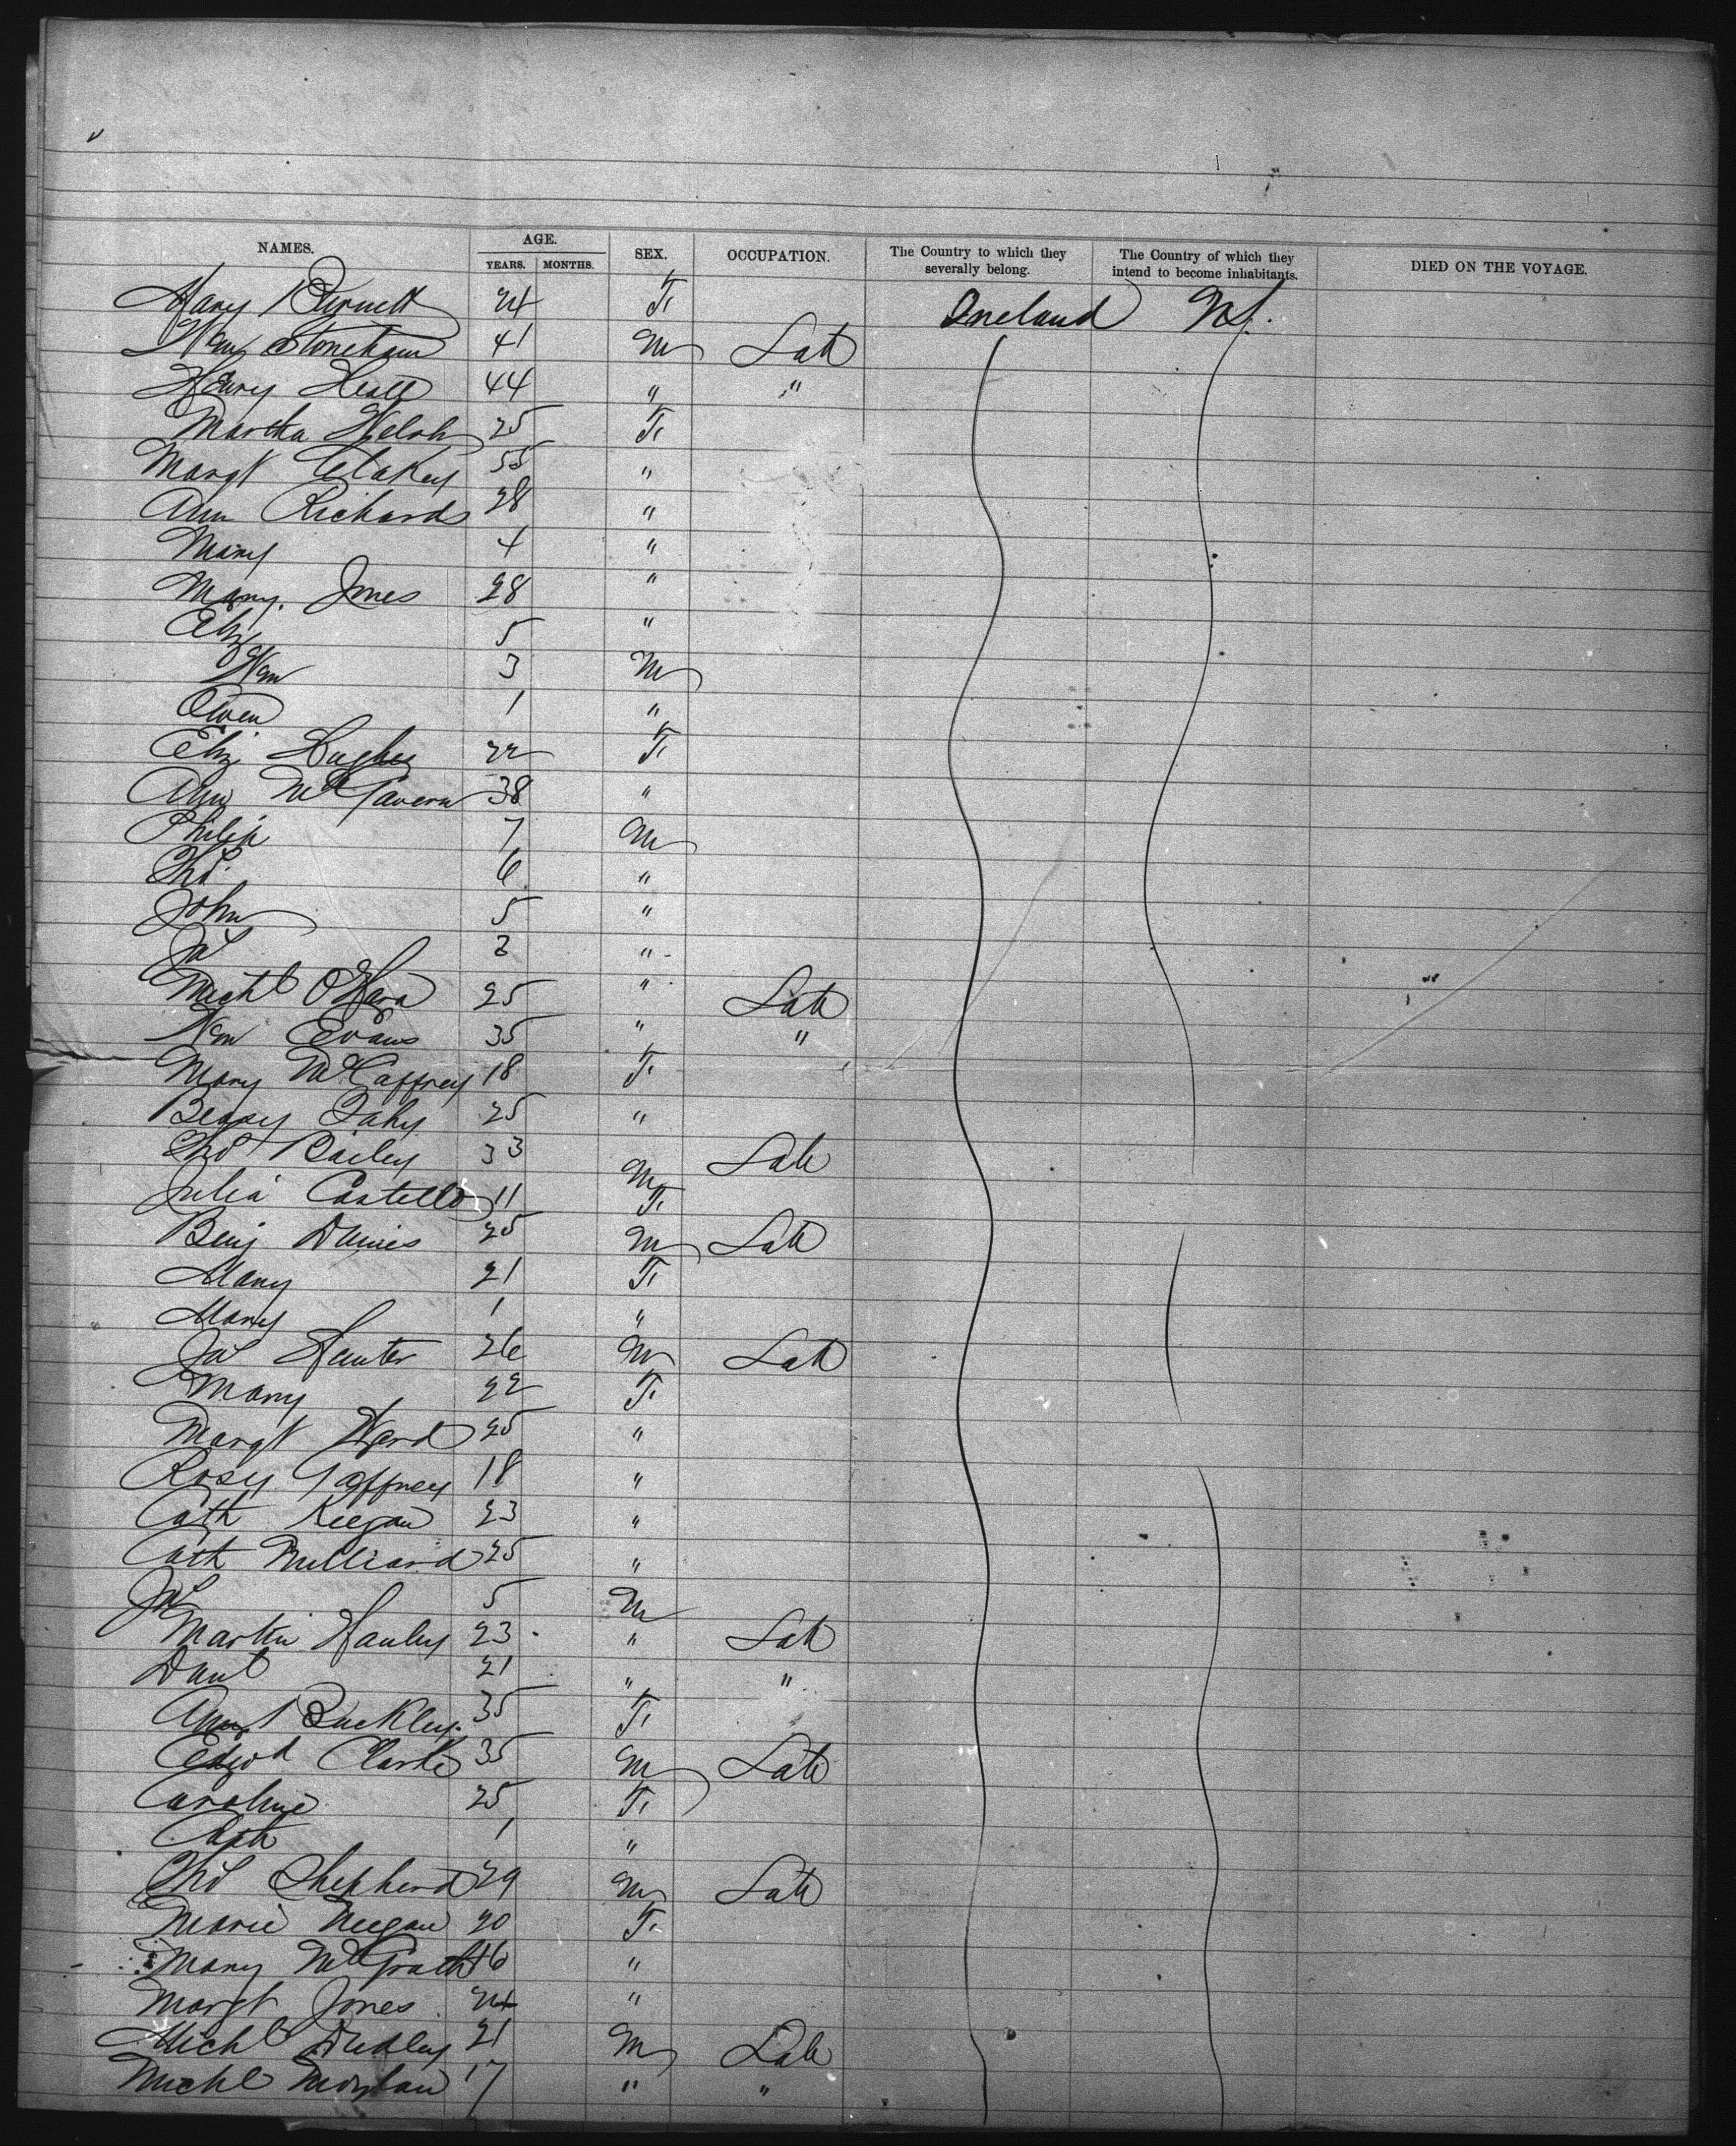 NAMES. AGE. SEX. OCCUPATION. The Country to which they severally belong. The Country of which they intend to become inhabitants. DIED ON THE VOYAGE.
YEARS. MONTHS.
Mary Burnett 24 F. Ireland
Wm Stoneham 41 M Lab
Henry 44 " "
Martha Welsh 25 F.
Margt 55 "
Ann Richards 28 "
Mary 4 "
Mary. Jones 28 "
Eliz 5 "
Wm 3 M
Owen 1 "
Eliz Hughes 22 F.
Ann McGavern 38 "
Philip 7 M
Thos. 6 "
John 5 "
Jas "
Michl OHara 25 " Lab
Wm Evans 35 " "
Mary McCaffrey 18 F.
Bessy Fahy 25 "
Thos Bailey 33 M Lab
Julia Costello 11 F.
Benj Davies 25 M Lab
Mary 21 F.
Mary 1 "
Jas Hunter 26 M Lab
Mary 22 F.
Margt Ward 25 "
Rosey Gaffney 18 "
Cath Keegan 23 "
Cath 25 "
Jas 5 M
Martin Hanley 23 " Lab
Danl 21 " "
Ann Buckley. 35 F.
Edwd Clarke 35 M Lab
Caroline 25 F.
Cath 1 "
Thos Shepherd 29 M Lab
Marie 20 F.
Mary McGrath 16 "
Margt Jones 24 "
Michl Dudley 21 M Lab
Michl Moylan 17 " "